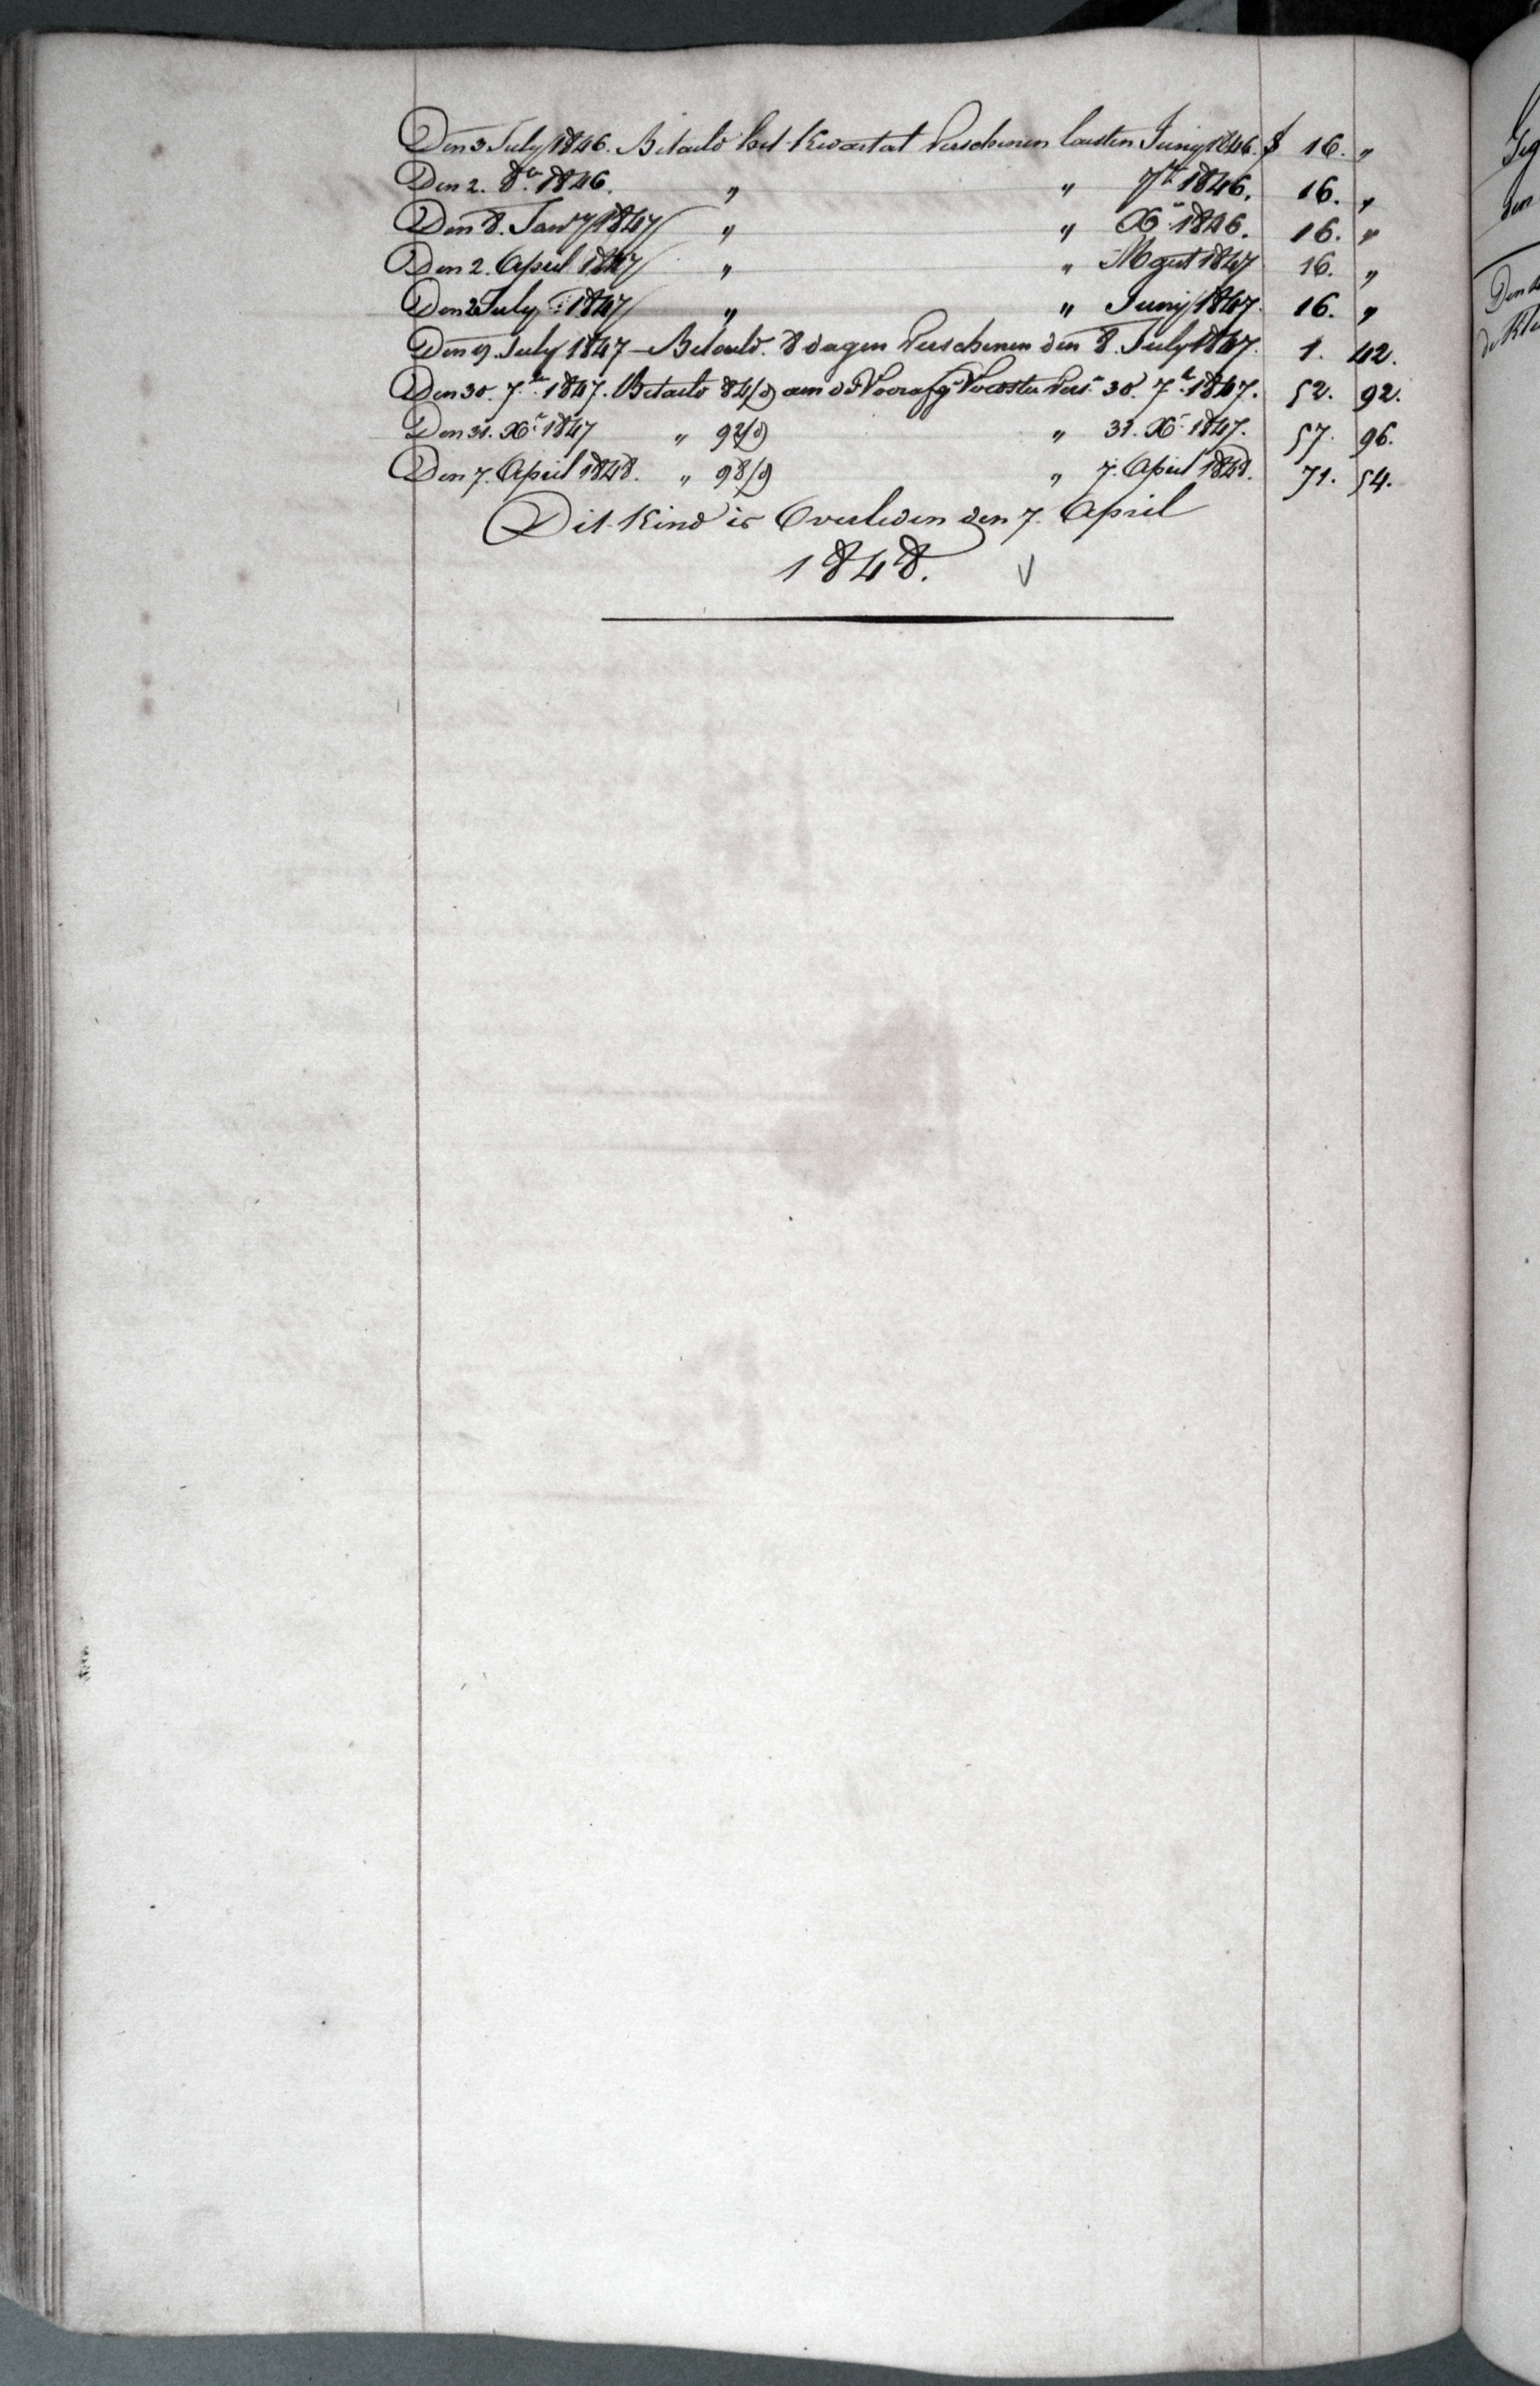 Den 3 July 1846. Betaald het Kwartaal Verschenen laasten Juny 1846. $ 16. „
Den 2. 8br. 1846. „ „ 7br 1846. 16. „
Den 8. Jany 1847 „ „ Xr 1846. 16. „
Den 2. April 1847 „ „ Maart 1847 16. „
Den 2 July 1847 „ „ Juny 1847. 16. „
Den 9. July 1847 — Betaald. 8 dagen Verschenen den 8. July 1847. 1. 42.
Den 30. 7br. 1847. Betaald 84/d aan de Voorzg Vers. 30. 7br. 1847. 52. 92.
Den 31. Xr 1847 „ 92/d „ 31. Xr 1847. 57. 96.
Den 7. April 1848. „ 98/d „ 7. April 1848. 71. 54.
Dit Kind is Overleden den 7. April
1848.